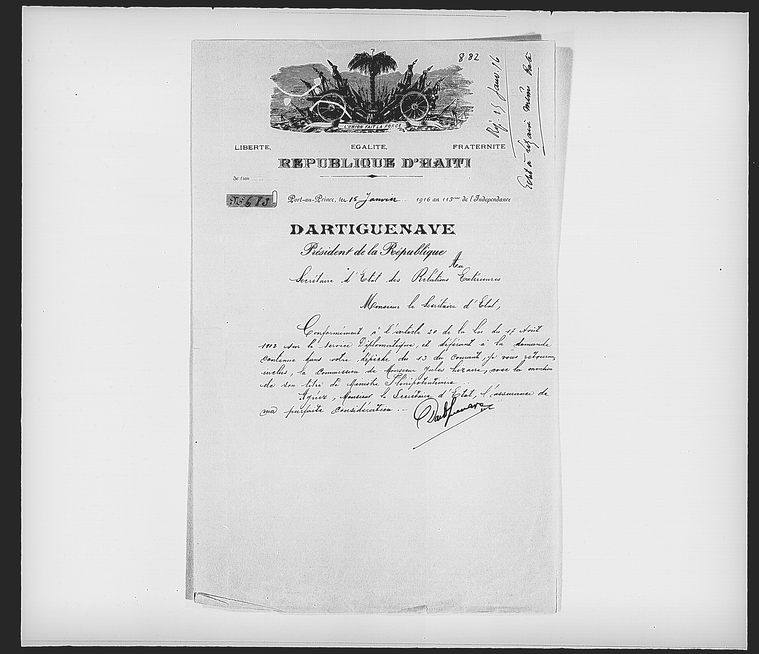 882
Rép. 15 Janv. 16
L'UNION FAIT LA FORCE
LIBERTE, EGALITE, FRATERNITE
REPUBLIQUE D'HAITI
Section
No 683
Port-au-Prince, le 15 Janvier 1916 an 113me de l'Indépendance
DARTIGUENAVE
Président de la République
Au
Secrétaire d'Etat des Relations Extérieures
Monsieur le Secrétaire d'Etat,
Conformément à l'article 20 de la loi du 17 Août
1912 sur le service Diplomatique, et déférant à la demande
contenue dans votre dépêche du 13 du courant, je vous retourne,
incluse, la commission de Monsieur Jules Lizaire, avec la mention
de son titre de Ministre Plénipotentiaire.
Agréez, Monsieur le Secrétaire d'Etat, l'assurance de
ma parfaite considération ..
Dartiguenave